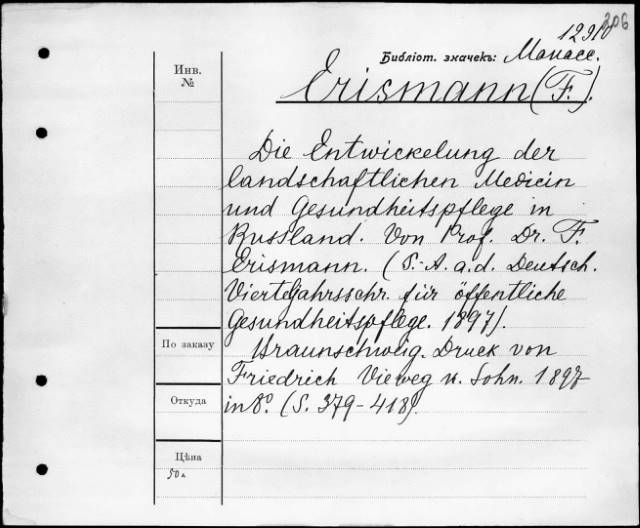 206
12910
Инв.
№
Библіот. значекъ: Манасс.
Erismann (F.).
Die Entwickelung der
landschaftlichen Medicin
und Gesundheitspflege in
Russland. Von Prof. Dr. F.
Erismann. (S.-A. a. d. Deutsch.
Vierteljahrsschr. für öffentliche
Gesundheitspflege. 1897).
Braunschweig. Druck von
Friedrich Vieweg u. Sohn. 1897
in 8º. (S. 379-418).
По заказу
Откуда
Цѣна
50к